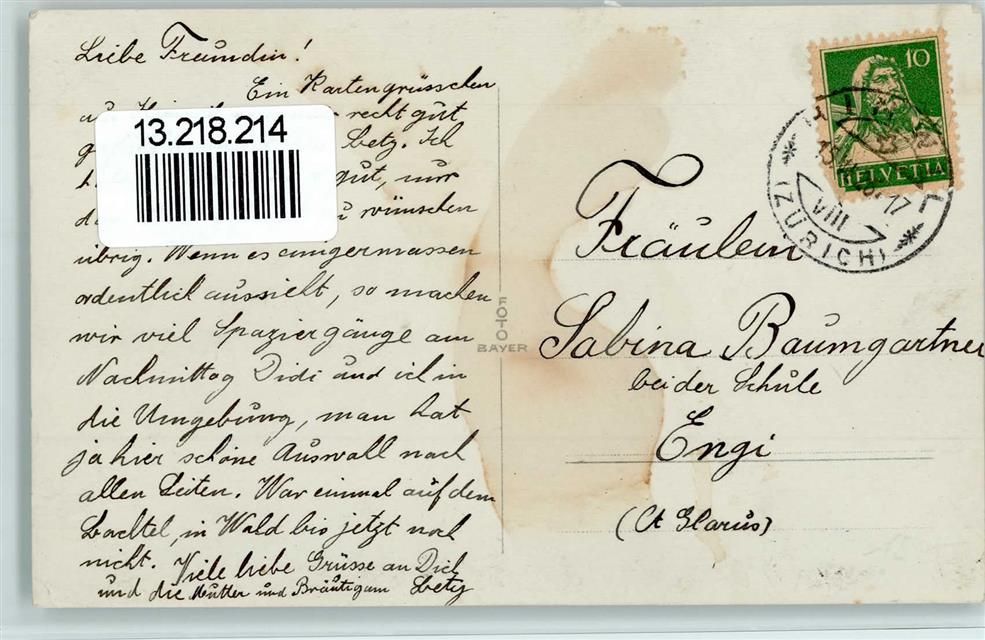 Liebe Freundin!
Ein Kartengrüsschen
recht gut
Betz. Ich
gut, nur
wünschen
übrig. Wenn es einigermassen
ordentlich aussieht, so machen
wir viel Spaziergänge am
Nachmittag Didi und ich in
die Umgebung, man hat
ja hier schöne Auswahl nach
allen Seiten. War einmal auf dem
Bachtel, in Wald bis jetzt noch
nicht. Viele liebe Grüsse an Dich
und die Mutter und Bräutigam Betz
13.218.214
FOTO
BAYER
10
HELVETIA
VIII
(ZÜRICH)
Fräulein
Sabina Baumgartner
bei der Schule
Engi
(Ct Glarus)